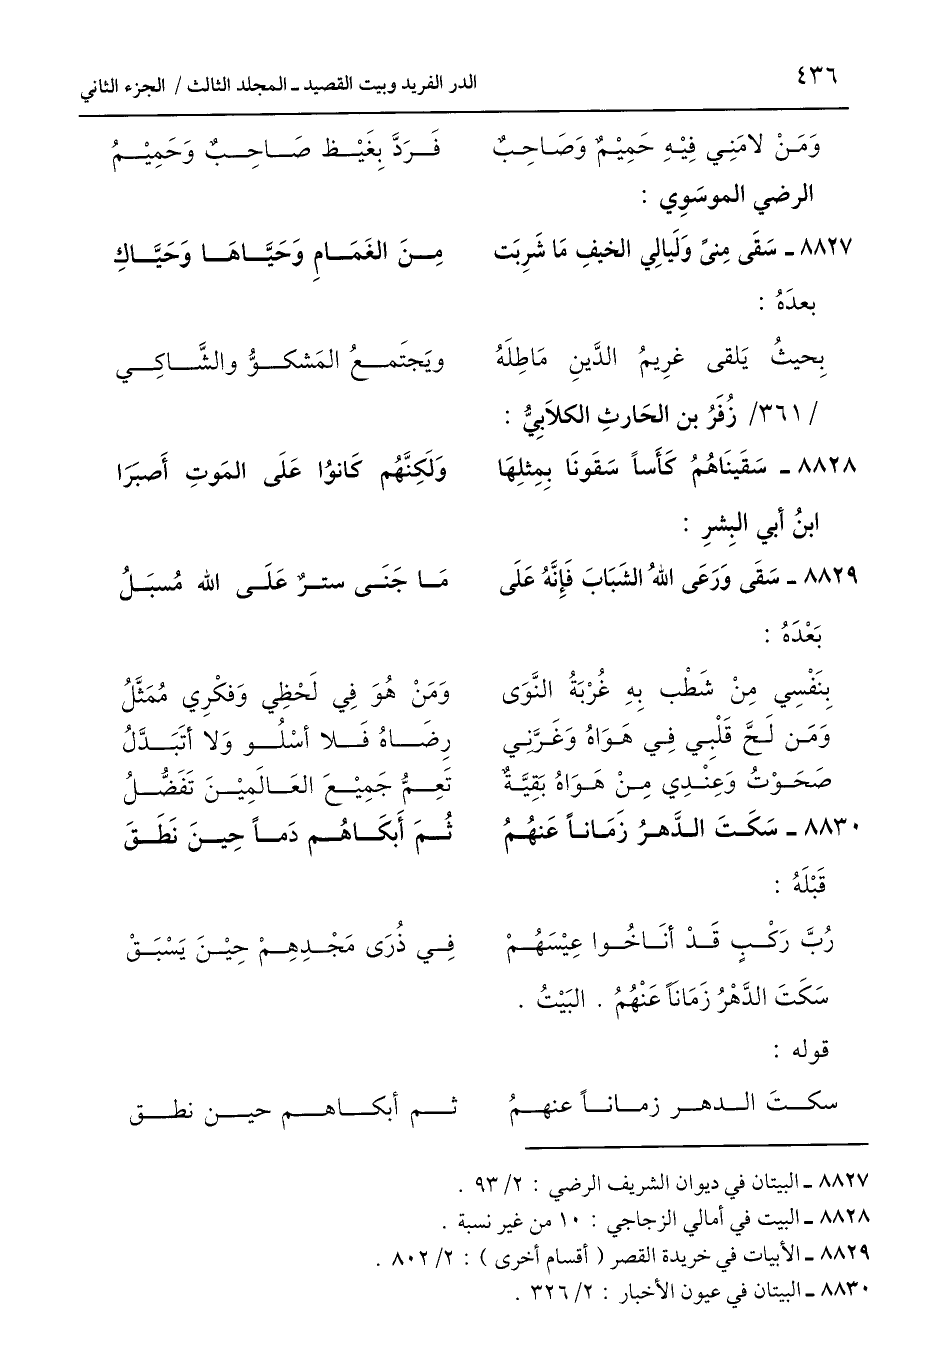 ٤٣٦ الدر الفريد وبيت القصيد ـ المجلد الثالث / الجزء الثاني
وَمَنْ لامَنِي فِيْهِ حَمِيْمٌ وَصَاحِبٌ فَرَدَّ بِغَيْظٍ صَاحِبٌ وَحَمِيْمُ
الرضي الموسَوِي :
٨٨٢٧ ـ سَقَى مِنىً وَلَيَالِي الخيفِ مَا شَرِبَت مِنَ الغَمَامِ وَحَيَّاهَا وَحَيَّاكِ
بعدَهُ :
بِحيثُ يَلقى غريمُ الدَّينِ مَاطِلَهُ ويَجتَمعُ المَشكوُّ والشَّاكِي
/ ٣٦١/ زُفَرُ بن الحَارثِ الكلاَبِيُّ :
٨٨٢٨ ـ سَقَينَاهُمُ كَأساً سَقَونَا بِمِثلِهَا وَلَكِنَّهُم كَانوُا عَلَى المَوتِ أَصبَرَا
ابنُ أبي البِشرِ :
٨٨٢٩ ـ سَقَى وَرَعَى اللهُ الشَّبَابَ فَإنَّهُ عَلَى مَا جَنَى سترٌ عَلَى الله مُسبَلُ
بَعْدَهُ :
بِنَفْسِي مِنْ شَطْب بِهِ غُرْبَةُ النَّوَى وَمَنْ هُوَ فِي لَحْظِي وَفكْرِي مُمَثَّلُ
وَمَن لَحَّ قَلْبِي فِي هَوَاهُ وَغَرَّنِي رِضَاهُ فَلا أسْلُو وَلا أتَبَدَّلُ
صَحَوْتُ وَعِنْدِي مِنْ هَوَاهُ بَقِيَّةٌ تَعِمُّ جَمِيْعَ العَالَمِيْنَ تَفَضُّلُ
٨٨٣٠ ـ سَكَتَ الدَّهرُ زَمَاناً عَنهُمُ ثُمَ أَبكَاهُم دَماً حِينَ نَطَقَ
قَبْلَهُ :
رُبَّ رَكْبٍ قَدْ أنَاخُوا عِيْسَهُمْ فِي ذُرَى مَجْدِهِمْ حِيْنَ يَسْبَقْ
سَكَتَ الدَّهْرُ زَمَاناً عَنْهُمُ . البَيْتُ .
قوله :
سكتَ الدهر زماناً عنهمُ ثم أبكاهم حين نطق
٨٨٢٧ ـ البيتان في ديوان الشريف الرضي : ٢/ ٩٣ .
٨٨٢٨ ـ البيت في أمالي الزجاجي : ١٠ من غير نسبة .
٨٨٢٩ ـ الأبيات في خريدة القصر ( أقسام أخرى ) : ٢/ ٨٠٢ .
٨٨٣٠ ـ البيتان في عيون الأخبار : ٢/ ٣٢٦ .